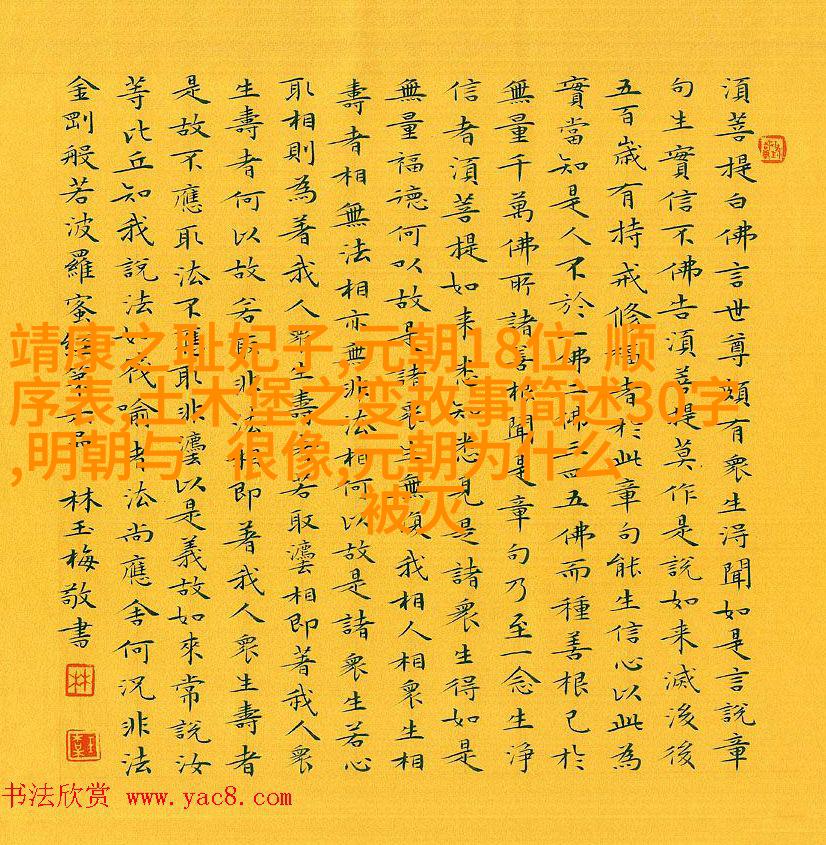 須菩提白佛言世尊頗有衆生得聞如是言說章
句生實信不佛告須菩提莫作是說如来滅後後
五百歲有持戒修福者於此章句能生信心以此為
實當知是人不於一佛二佛三四五佛而種善根已於
無量千萬佛所諸善根聞是章句乃至一念生淨
信者須菩提如来悉知悉見是諸衆生得如是
無量福德何以故是諸衆生無復我相人相衆生相
壽者相無法相亦無非法相何以故是諸衆生若心
取相則為著我人衆生壽者若取灋相即著我人衆
生壽者何以故若取非法相即著我人衆生壽者
是故不應取法不應取非灋以是義故如來常說汝
等比丘知我說法如筏喻者法尚應舍何況非法
金剛般若波羅蜜經第六品 林玉梅敬書
林
靖康之耻妃子,元朝18位 顺
序表,土木堡之变故事简述30字
,明朝与 很像,元朝为什么
被灭
书法欣赏 www.yac8.com